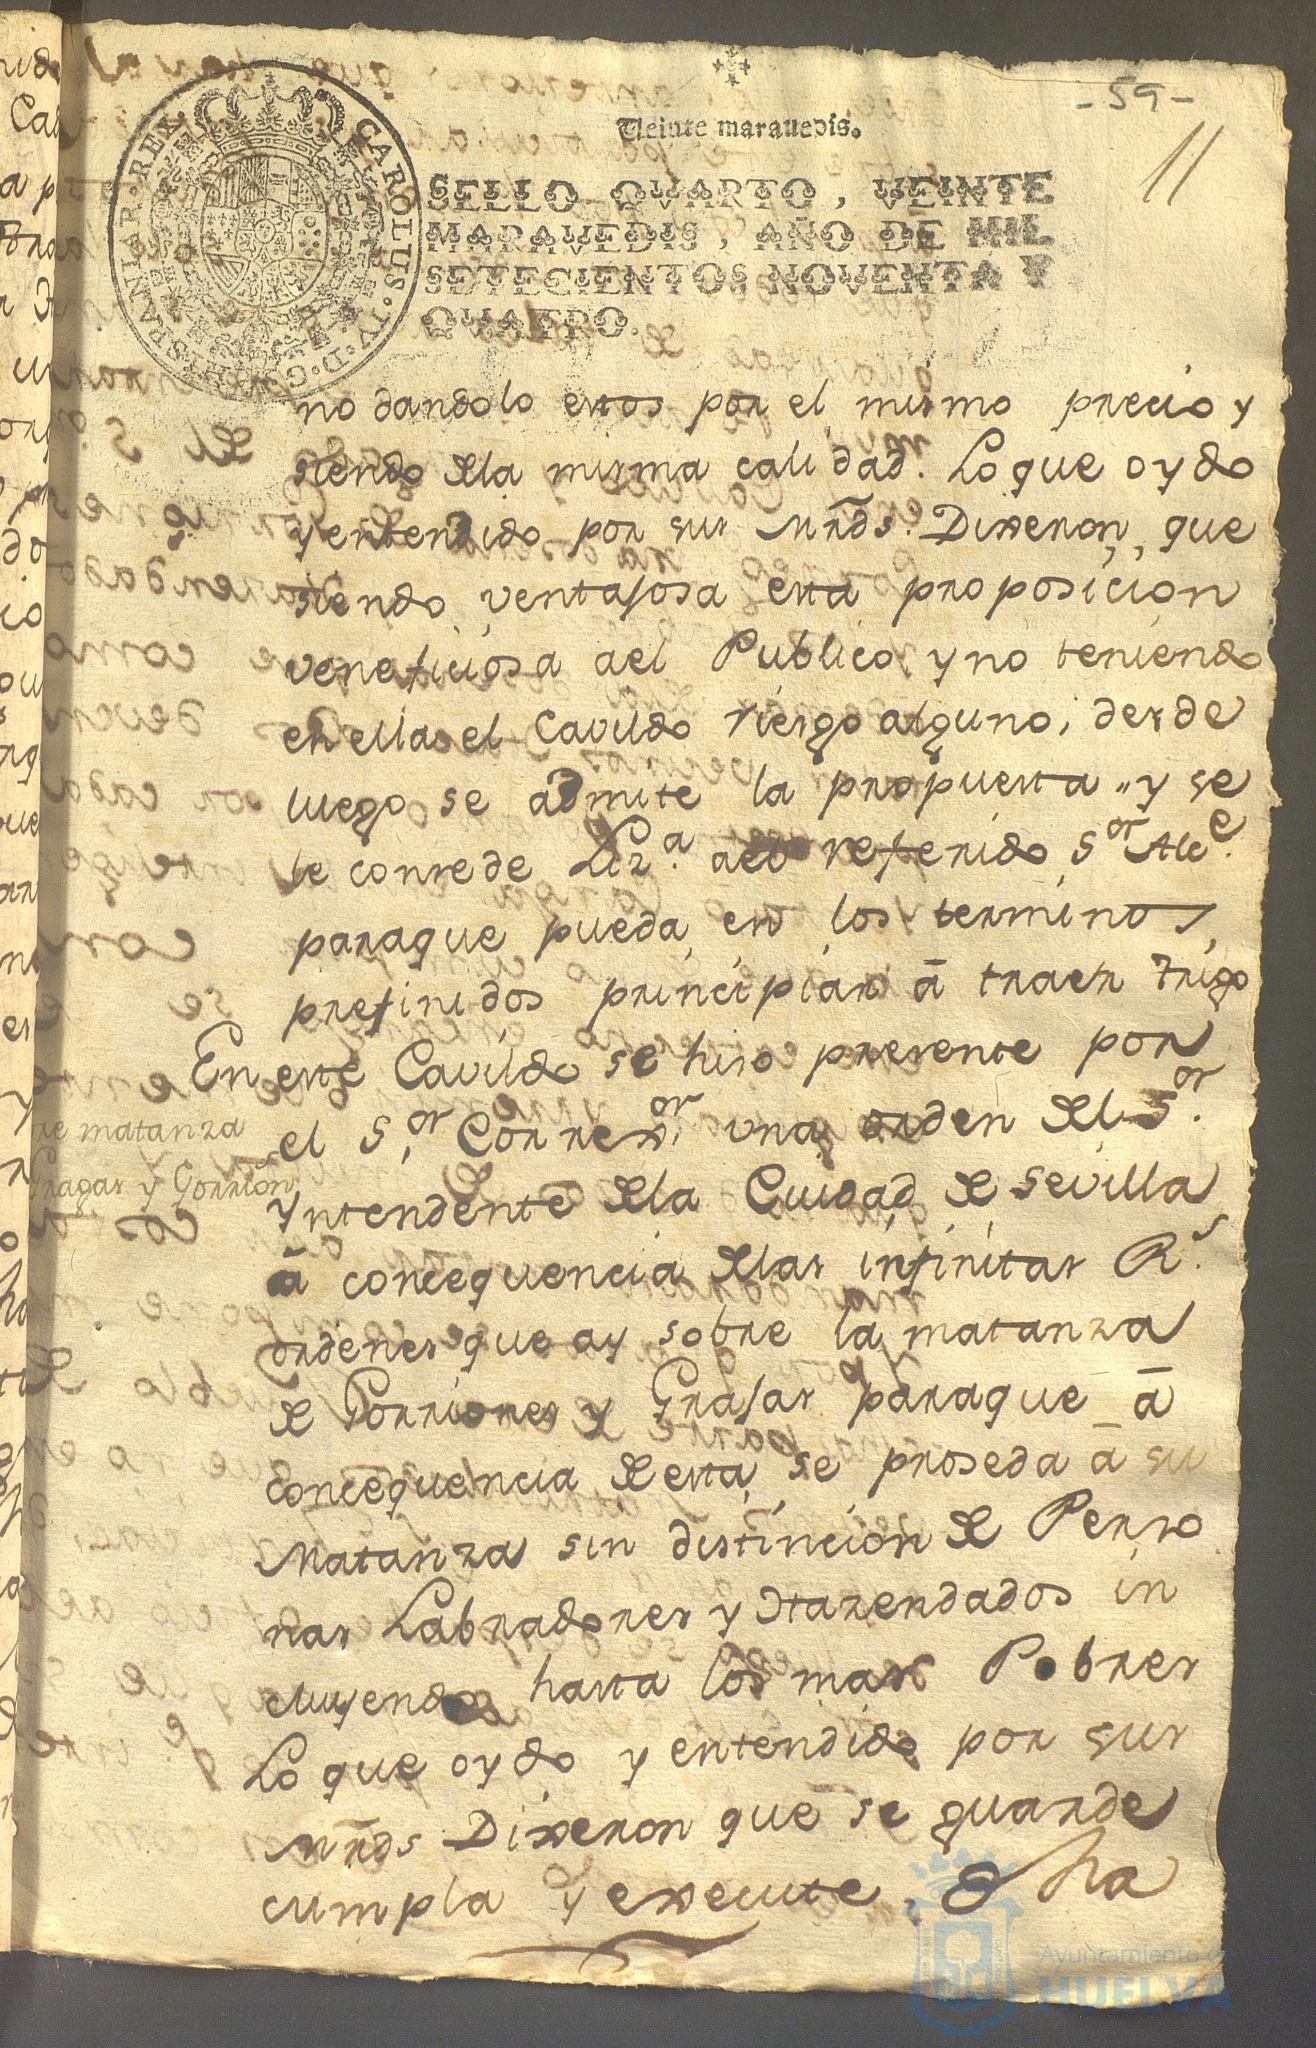 - 59 -
11
Veinte marauedis.
CAROLUS·IV·D·G·HISPANIAR·REX
SELLO QVARTO, VEINTE
MARAVEDIS, AÑO DE MIL
SETECIENTOS NOVENTA Y
QUATRO.
no dandolo estos por el mismo precio y
siendo dela misma calidad. Lo que oydo
y entendido por sus Mrds. Dixeron, que
siendo ventajosa esta proposicion
veneficiosa ael Publico y no teniendo
en ella el Cavildo riesgo alguno, desde
luego se admite la propuesta " y se
le consede Liz.a ael referido S.or Alc.e
paraque pueda en los terminos
prefinidos principiar â traer trigo
En este Cavildo se hiso presente por
el S.or Correx.or una orden del S.or
Yntendente dela Ciudad de Sevilla
â concequencia delas infinitas R.s
ordenes que ay sobre la matanza
de Gorriones y Grajas paraque â
concequencia de esta se proseda â su
Matanza sin distincion de Perso
nas Labradores y Hasendados in
cluyendo hasta los mas Pobres
Lo que oydo y entendido por sus
Mrds Dixeron que se guarde
cumpla y execute,
re matanza
Gragas y Gorrión
Ayuntamiento de
HUELVA